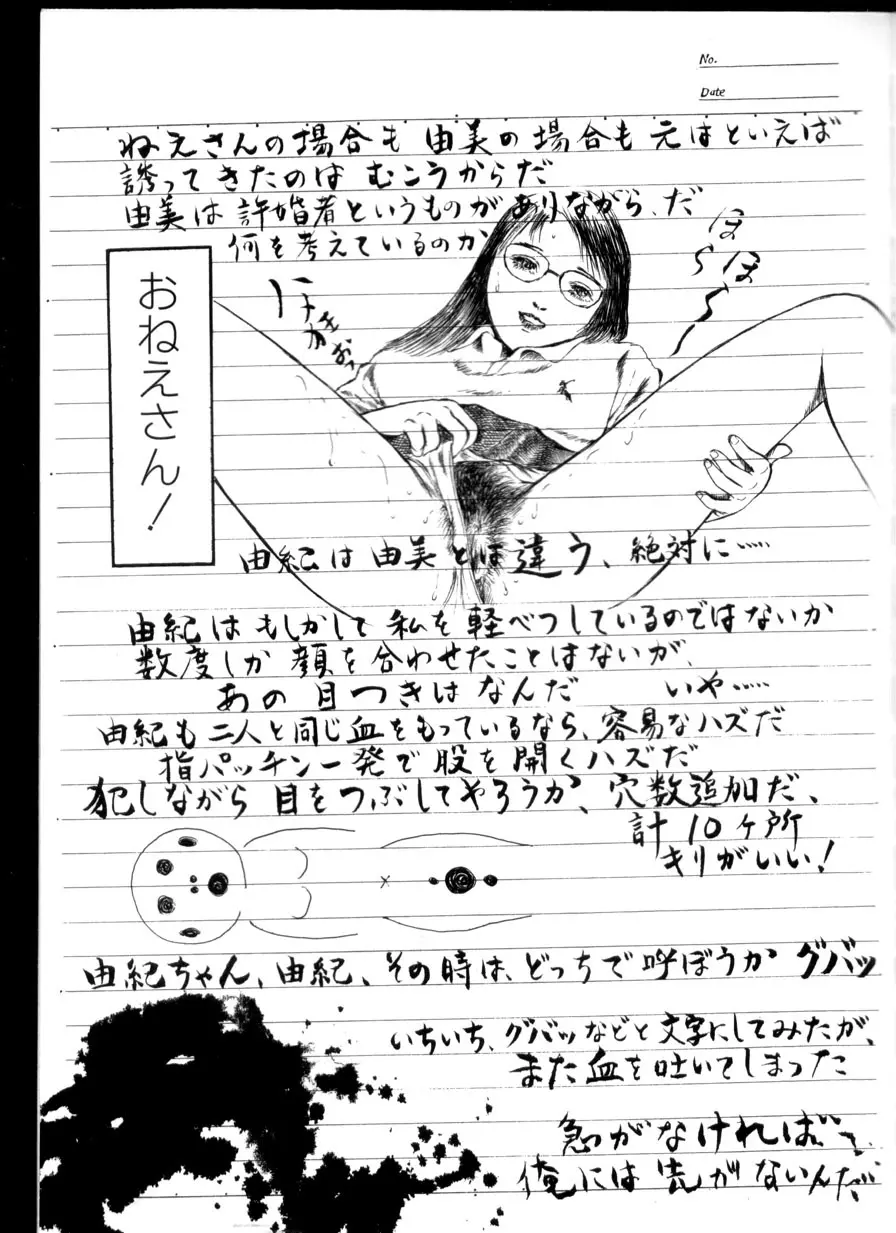 No.
Date
ねえさんの場合も 由美の場合も 元はといえば
誘ってきたのは むこうからだ
由美は 許婚者というものが ありながら、だ
何を考えているのか
ほ〜らほ〜ら
おねえさん!
由紀は 由美とは違う、絶対に……
由紀は もしかして 私を 軽べつしているのではないか
数度しか 顔を合わせたことはないが、
あの目つきは なんだ いや……
由紀も 二人と同じ血をもっているなら、容易なハズだ
指パッチン一発で 股を開くハズだ
犯しながら 目をつぶしてやろうか、穴数追加だ、
計 10ヶ所
キリがいい!
由紀ちゃん、由紀、その時は、どっちで呼ぼうか グバッ
いちいち、グバッなどと文字にしてみたが、
また血を吐いてしまった
急がなければ…
俺には先がないんだ…